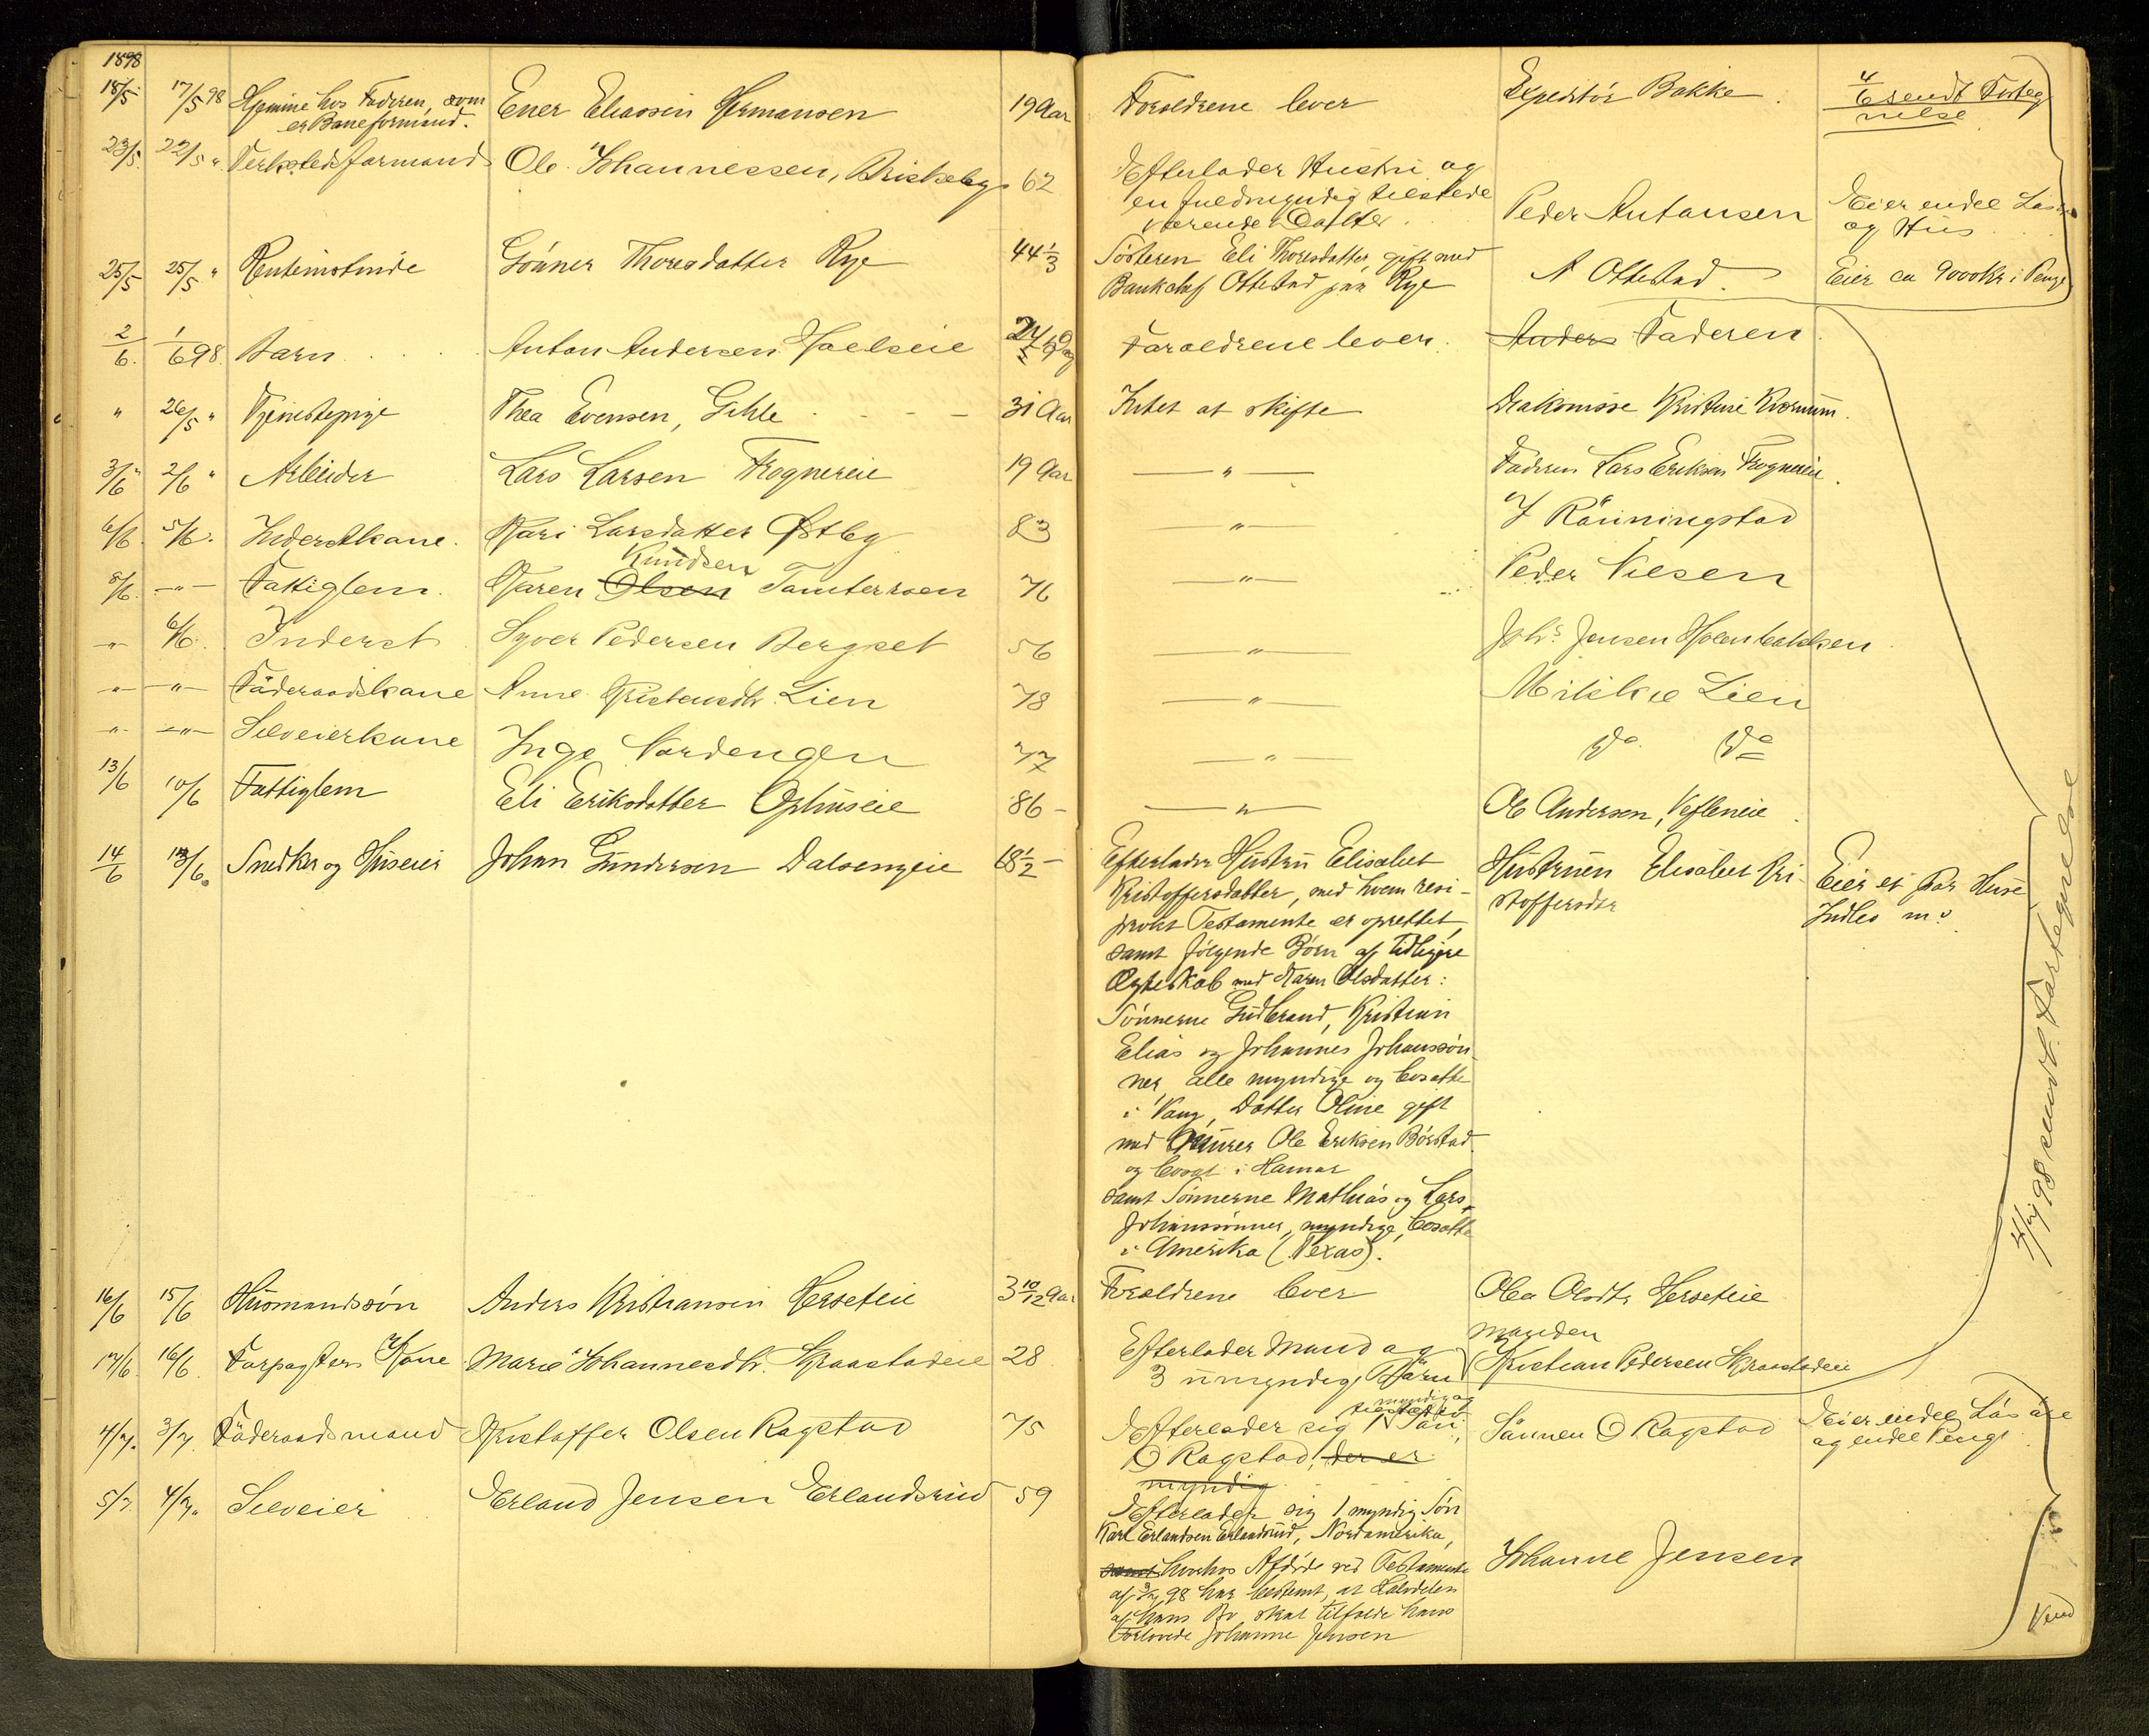 1898
18/5 17/5 98 Hjemme hos Faderen, som Ener Eliassen Hermansen 19 Aar Forældrene lever Expeditør Bakke. 4/6 sendt Forteg
er Baneformand. nelse
23/5 22/5 " Verkstedsformand Ole Johannessen, Briskeby 62 Efterlader Hustru og
en fuldmyndig tilstede Peder Antonsen Eier endel Løsøre
værende Datter og Hus
25/5 25/5 " Rentenistinde Gunner Thoresdatter Rye 44 1/3 Søsteren Eli Thoresdatter gift med A Ottestad Eier ca 9000 Kr i Penge
Bankchef Ottestad paa Rye
2/6 1/6 98 Barn Anton Andersen Hoelseie Forældrene lever. Anders Faderen
" 26/5 " Tjenestepige Thea Evensen, Gihle 31 Aar Intet at skifte Diakonisse Kristine Kværnum.
3/6 " 2/6 " Arbeider Lars Larsen Frognereie 19 Aar — " — Faderen Lars Eriksen Frognereie.
6/6. 5/6. Inderstkone. Kari Larsdatter Østby 83 — " — J Rønningstad
Knudsen
8/6. — " — Fattiglem. Karen Olsen Tomterroen 76 — " — Peder Nilsen
— " — 6/6. Inderst Syver Pedersen Bergset 56 — " — Johs Jensen Holenbakken
— " — — " — Føderaadskone Anne Kristensdtr. Lien 78 — " — Mikkel Lien
— " — — " — Selveierkone Inge Nordengen 77 — " — Do Do
13/6 10/6 Fattiglem Eli Eriksdatter Ophuseie 86 — — " — Ole Andersen, Kefleneie
14/6 13/6. Snedker og Huseier Johan Gundersen Dalsengeie 68 1/2 — Efterlader Hustru Elisabet Hustruen Elisabet Kri- Eier et Par Huse
Kristoffersdatter, med hvem resi- stoffersdtr Indbo m.v.
prokt Testamente er oprettet,
samt følgende Børn af tidligere
Ægteskab med Karen Olsdatter:
Sønnerne Gudbrand, Kristian
Elias og Johannes Johanssøn-
ner, alle myndige og bosatte
i Vang, Datter Oline gift
med Murer Ole Eriksen Børstad
og bosat i Hamar
samt Sønnerne Mathias og Lars
Johanssønner, myndige, bosatte
i Amerika (Texas).
16/6 15/6 Husmandssøn Anders Kristiansen Herseteie 3 10/12 Aar Forældrene lever Olea Olsdtr Herseteie
17/6. 16/6. Forpagters Kone Marie Johannesdtr. Skraastadeie 28 Efterlader Mand og Manden
3 umyndige Børn Kristian Pedersen Skraastadeie
4/7. 3/7. Føderaadsmand Kristoffer Olsen Ragstad 75 Efterlader sig 1 myndig og tilstedev Søn, Sønnen O Ragstad Eier endel Løsøre
O Ragstad, der er og endel Penge
myndig
5/7. 4/7. Selveier Erland Jensen Erlandsrud 59 Efterlader sig 1 myndig Søn
Karl Erlandsen Erlandsrud, Nordamerika,
samt hvorhos Afdøde ved Testamente Johanne Jensen
af 98 har bestemt, at Halvdelen
af hans Bo skal tilfalde hans
Forlovede Johanne Jensen
4/7 98 sendt Fortegnelse
Vend